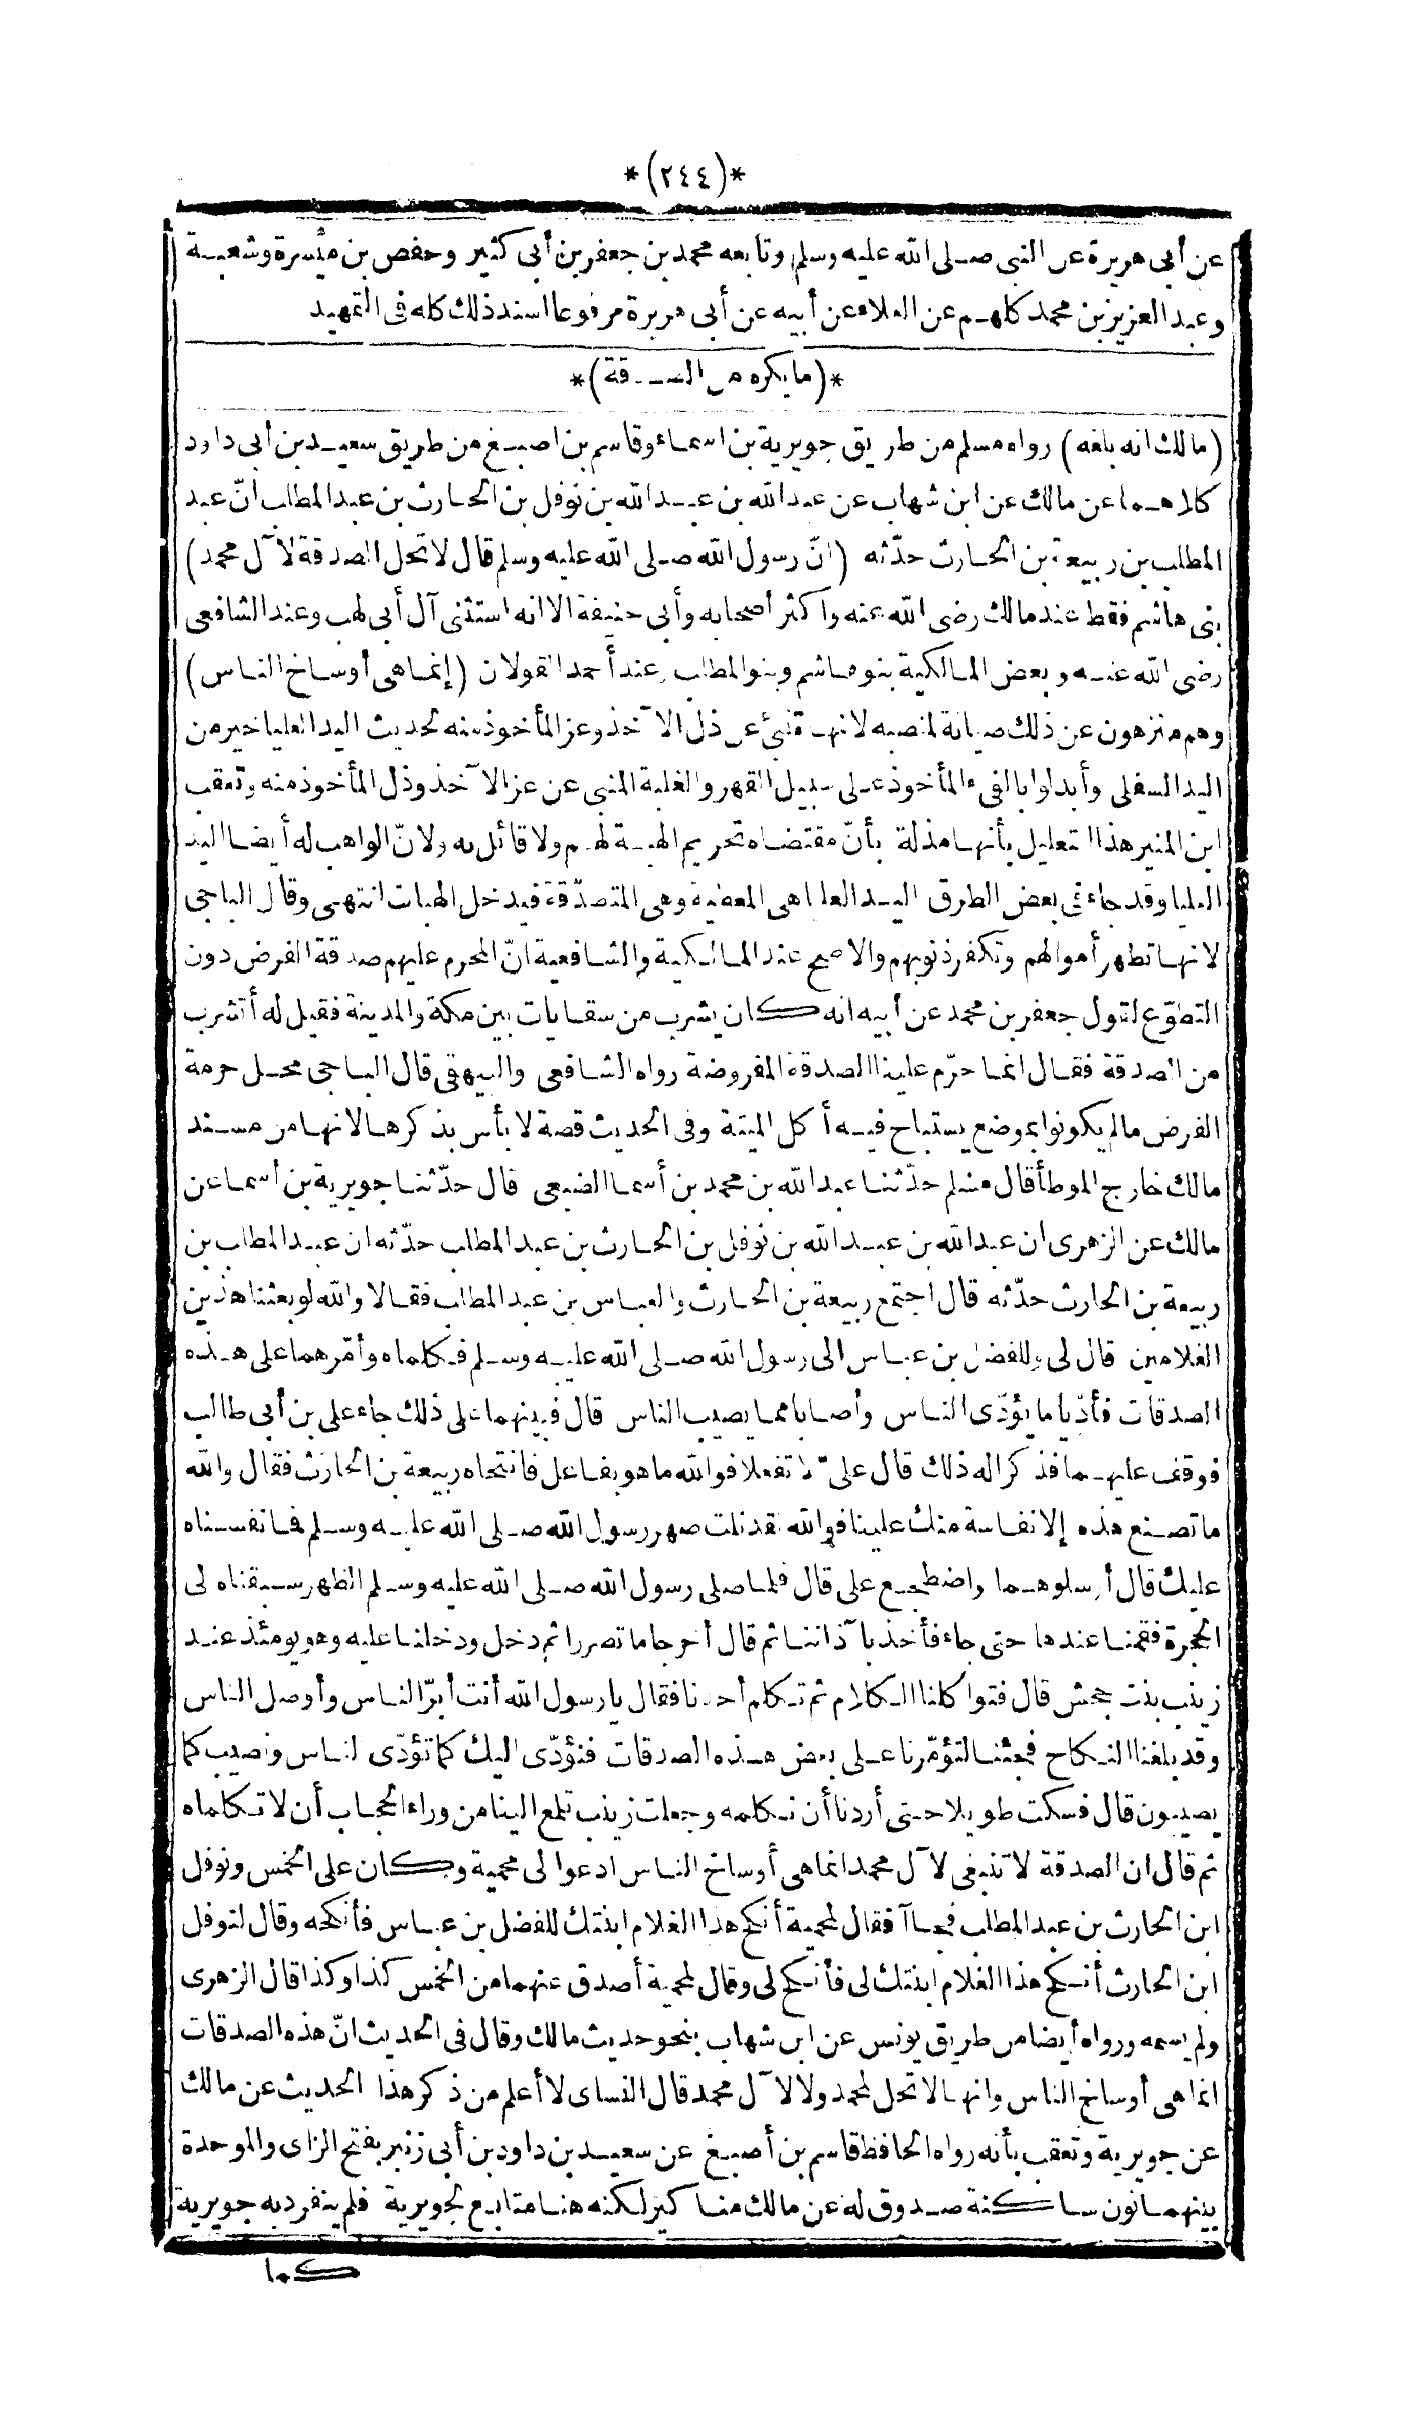 *(٢٤٤)*
عن أبى هريرة عن النبى صلى الله عليه وسلم وتابعه محمد بن جعفر بن أبى كثير وحفص بن ميسرة وشعبة
وعبد العزيز بن محمد كلهم عن العلاء عن أبيه عن أبى هريرة مرفوعا اسند ذلك كله فى التمهيد
*(ما يكره من الصدقة)*
(مالك انه بلغه) رواه مسلم من طريق جويرية بن اسماء وقاسم بن اصبغ من طريق سعيد بن أبى داود
كلاهما عن مالك عن ابن شهاب عن عبد الله بن عبد الله بن نوفل بن الحارث بن عبد المطلب انّ عبد
المطلب بن ربيعة بن الحارث حدّثه (انّ رسول الله صلى الله عليه وسلم قال لا تحل الصدقة لآل محمد)
بنى هاشم فقط عند مالك رضى الله عنه واكثر أصحابه وأبى حنيفة الا انه استثنى آل أبى لهب وعند الشافعى
رضى الله عنه وبعض المالكية بنو هاشم وبنو المطلب وعند أحمد القولان (إنما هى أوساخ الناس)
وهم منزهون عن ذلك صيانة لمنصبه لانها تنبئ عن ذل الآخذ وعز المأخوذ منه لحديث اليد العليا خير من
اليد السفلى وأبدلوا بالفىء المأخوذ على سبيل القهر والغلبة المنبى عن عز الآخذ وذل المأخوذ منه وتعقب
ابن المنير هذا التعليل بأنها مذلة بأنّ مقتضاه تحريم الهبة لهم ولا قائل به ولانّ الواهب له أيضا اليد
العليا وقد جاء فى بعض الطرق اليد العليا هى المعطية وهى المتصدّقة فيدخل الهبات انتهى وقال الباجى
لانها تطهر أموالهم وتكفر ذنوبهم والاصح عند المالكية والشافعية انّ المحرم عليهم صدقة الفرض دون
التطوّع لقول جعفر بن محمد عن أبيه انه كان يشرب من سقايات بين مكة والمدينة فقيل له أتشرب
من الصدقة فقال انما حرّم علينا الصدقة المفروضة رواه الشافعى والبيهقى قال الباجى محل حرمة
الفرض ما لم يكونوا بموضع يستباح فيه أكل الميتة وفى الحديث قصة لا بأس بذكرها لانها من مسند
مالك خارج الموطأ قال مسلم حدّثنا عبد الله بن محمد بن أسما الضبعى قال حدّثنا جويرية بن أسما عن
مالك عن الزهرى ان عبد الله بن عبد الله بن نوفل بن الحارث بن عبد المطلب حدّثه ان عبد المطلب بن
ربيعة بن الحارث حدّثه قال اجتمع ربيعة بن الحارث والعباس بن عبد المطلب فقالا والله لو بعثنا هذين
الغلامين قال لى وللفضل بن عباس الى رسول الله صلى الله عليه وسلم فكلماه وأمّرهما على هذه
الصدقات فأدّيا ما يؤدّى الناس وأصابا مما يصيب الناس قال فبينهما على ذلك جاء على بن أبى طالب
فوقف عليهما فذكرا له ذلك قال علىّ لا تفعلا فوالله ما هو بفاعل فانتحاه ربيعة بن الحارث فقال والله
ما تصنع هذه إلا نفاسة منك علينا فوالله لقد نلت صهر رسول الله صلى الله عليه وسلم فما نفسناه
عليك قال أرسلوهما واضطجع على قال فلما صلى رسول الله صلى الله عليه وسلم الظهر سبقناه لى
الحجرة فقمنا عندها حتى جاء فأخذ بآذاننا ثم قال أخرجا ما تصررا ثم دخل ودخلنا عليه وهو يومئذ عند
زينب بنت جحش قال فتواكلنا الكلام ثم تكلم أحدنا فقال يا رسول الله أنت أبرّ الناس وأوصل الناس
وقد بلغنا النكاح فجئنا لتؤمّرنا على بعض هذه الصدقات فنؤدّى اليك كما تؤدّى الناس ونصيب كما
يصيبون قال فسكت طويلا حتى أردنا أن نكلمه وجعلت زينب تلمع الينا من وراء الحجاب أن لا تكلماه
ثم قال ان الصدقة لا تنبغى لآل محمد انما هى أوساخ الناس ادعوا لى محمية وكان على الخمس ونوفل
ابن الحارث بن عبد المطلب فجاآ فقال لمحمية أنكح هذا الغلام ابنتك للفضل بن عباس فأنكحه وقال لنوفل
ابن الحارث أنكح هذا الغلام ابنتك لى فأنكح لى وقال لمحمية أصدق عنهما من الخمس كذا وكذا قال الزهرى
ولم يسمه ورواه أيضا من طريق يونس عن ابن شهاب بنحو حديث مالك وقال فى الحديث انّ هذه الصدقات
انما هى أوساخ الناس وانها لا تحل لمحمد ولا لآل محمد قال النساى لا أعلم من ذكر هذا الحديث عن مالك
عن جويرية وتعقب بأنه رواه الحافظ قاسم بن أصبغ عن سعيد بن داود بن أبى زنبر بفتح الزاى والموحدة
بينهما نون ساكنة صدوق له عن مالك مناكير لكنه هنا متابع لجويرية فلم ينفرد به جويرية
كما